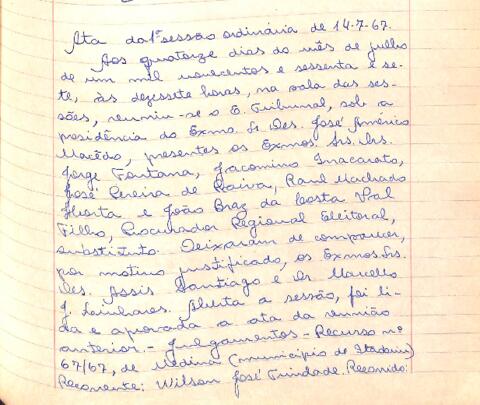 Ata da 1ª sessão ordinária de 14-7-67.
Aos quatorze dias do mês de julho
de um mil novecentos e sessenta e se-
te, às dezessete horas, na sala das ses-
sões, reuniu-se o E. Tribunal, sob a
presidência do Exmo. Sr. Des. José Américo
Macêdo, presentes os Exmos. Srs. Drs.
Jorge Fontana, Jacomino Inacarato,
José Pereira de Paiva, Raul Machado
Horta e João Braz da Costa Val
Filho, Procurador Regional Eleitoral,
substituto. Deixaram de comparecer,
por motivo justificado, os Exmos. Srs.
Des. Assis Santiago e Dr. Marcello
J. Linhares. Aberta a sessão, foi li-
da e aprovada a ata da reunião
anterior. - Julgamentos - Recurso nº
67/67, de Medina (município de Itaobim)
Recorrente: Wilson José Trindade. Recorrido: